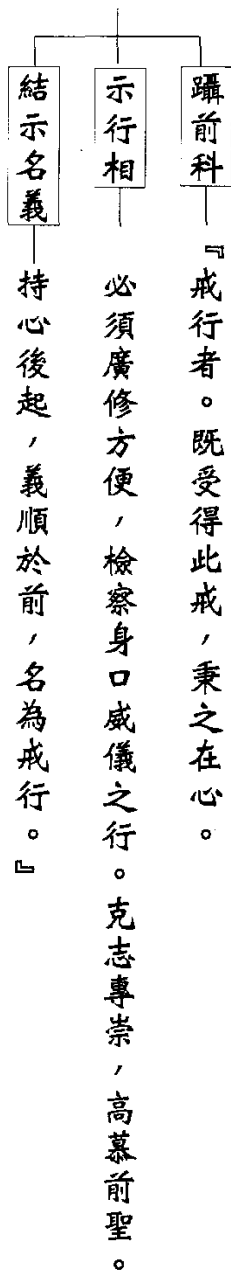 躡前科 『戒行者。既受得此戒，秉之在心。
示行相 必須廣修方便，檢察身口威儀之行。克志專崇，高慕前聖。
結示名義 持心後起，義順於前，名為戒行。』